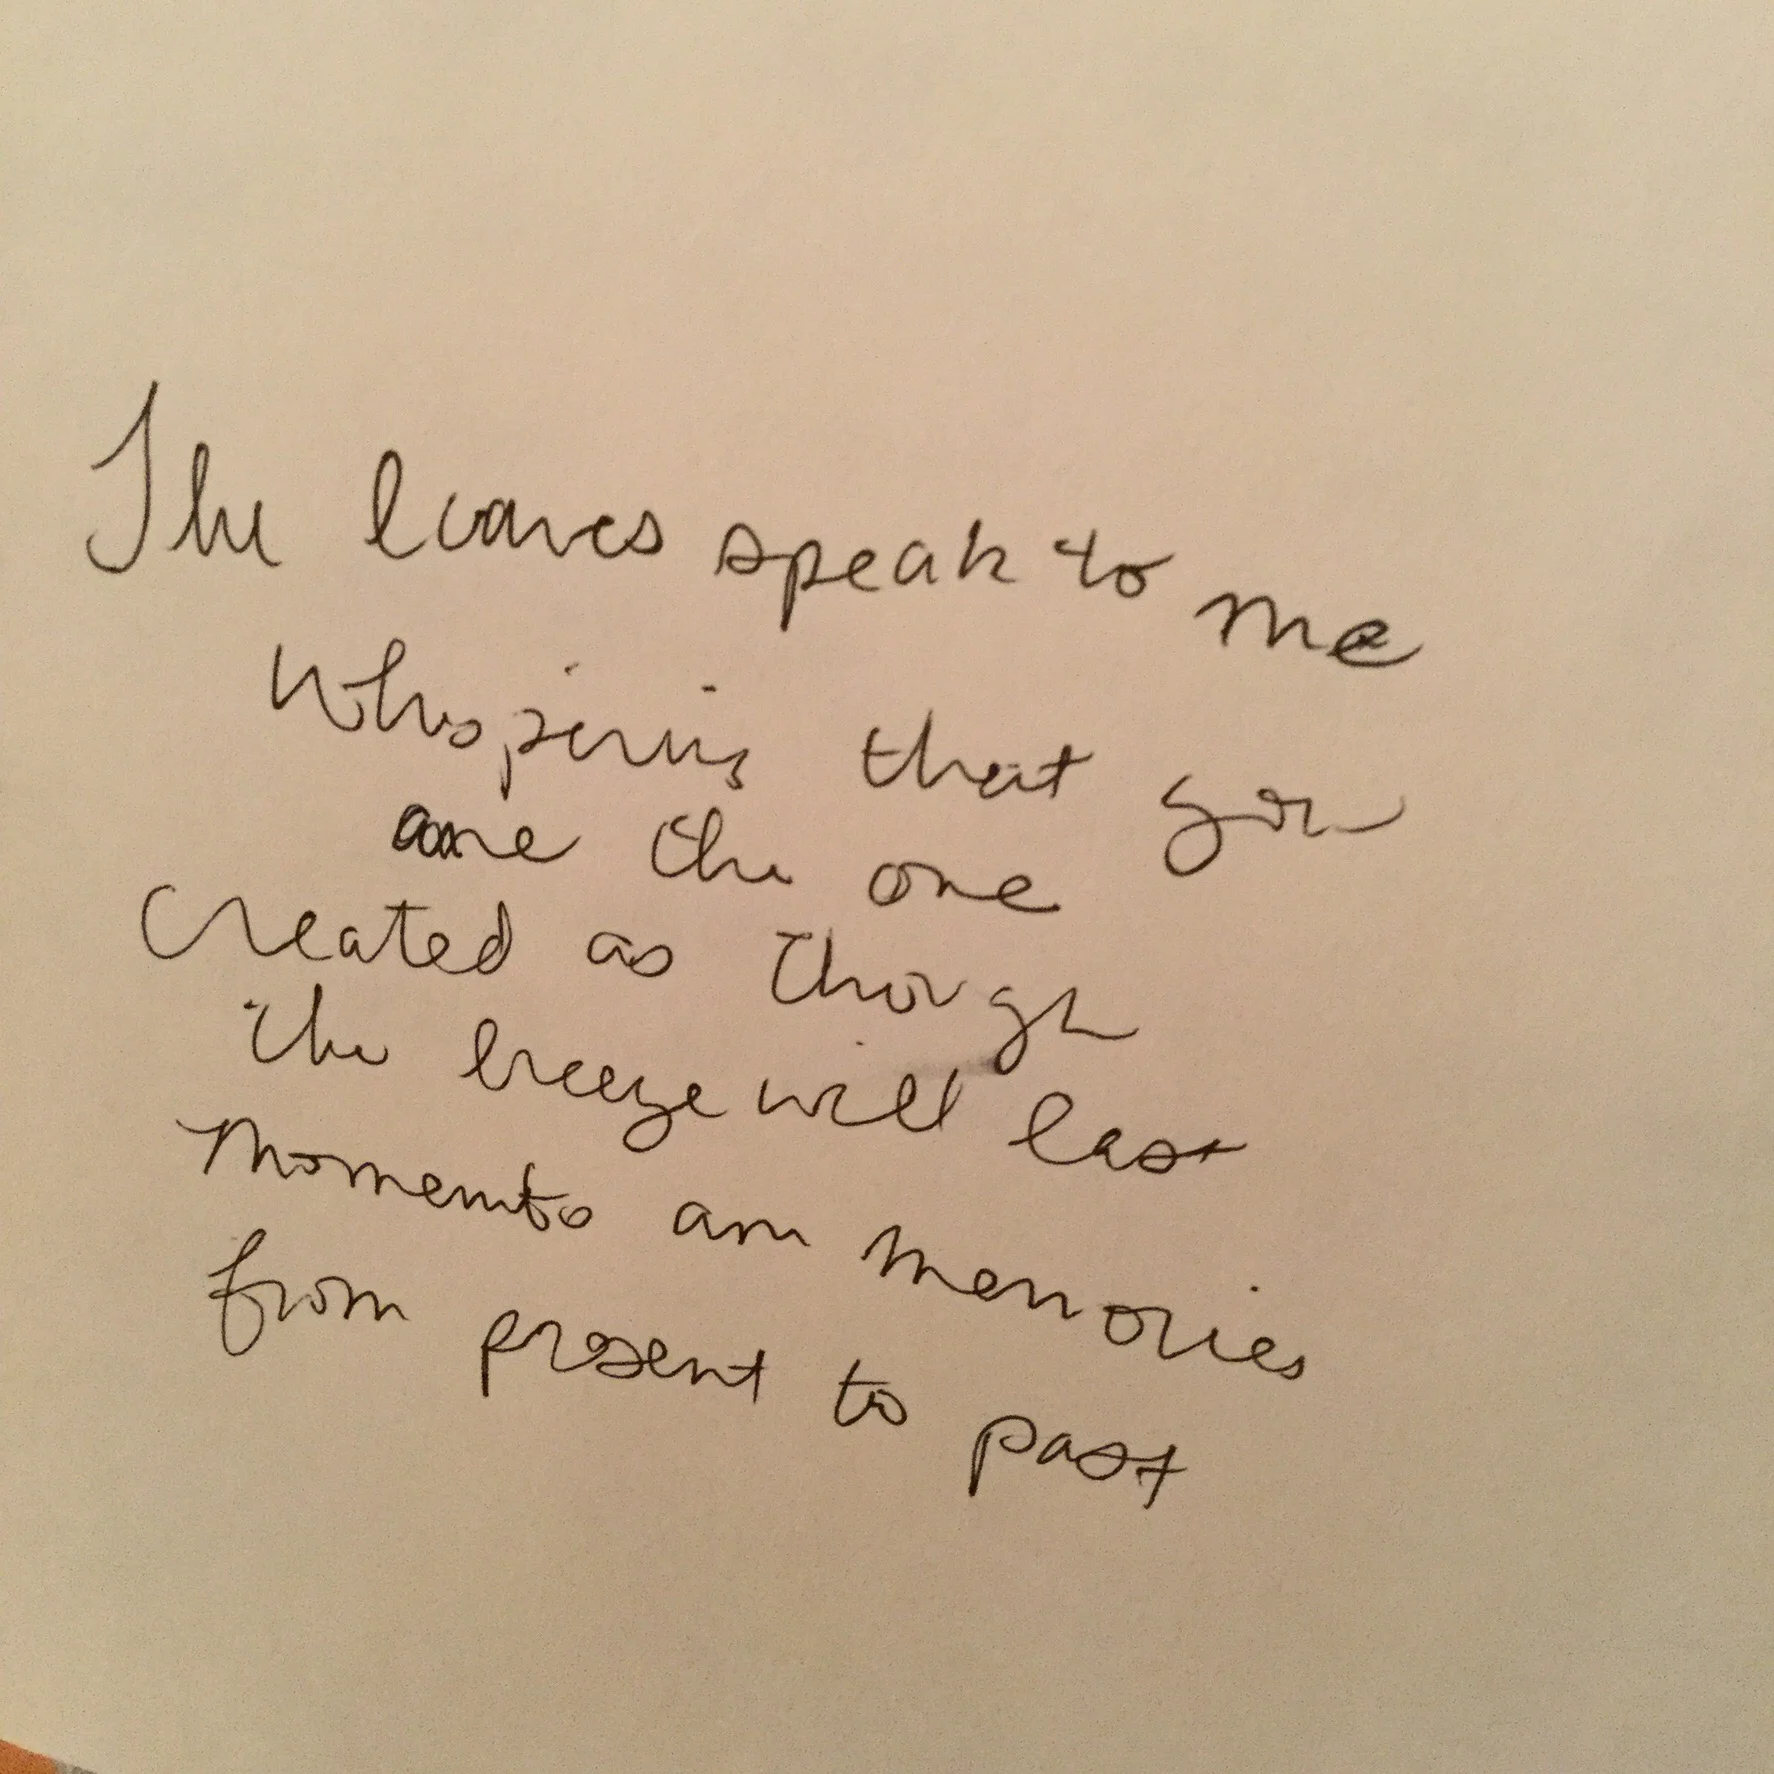 The leaves speak to me
whispering that you
are the one
created as though
the breeze will last
Momento are memories
from present to past